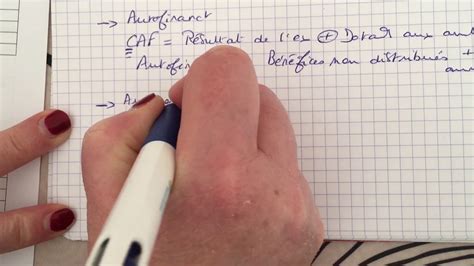 → Autofinanct
CAF = Résultat de l'ex ⊕ Dotat° aux am
Autofi Bénéfices non distribués +
→ A